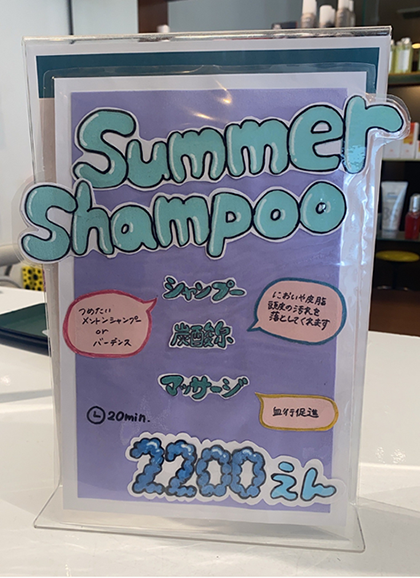 Summer
Shampoo
シャンプー
においや皮脂
頭皮の汚れを
落としてくれます
つめたい
メントンシャンプー
or
バーデンス
炭酸泉
マッサージ
血行促進
20min.
2200えん